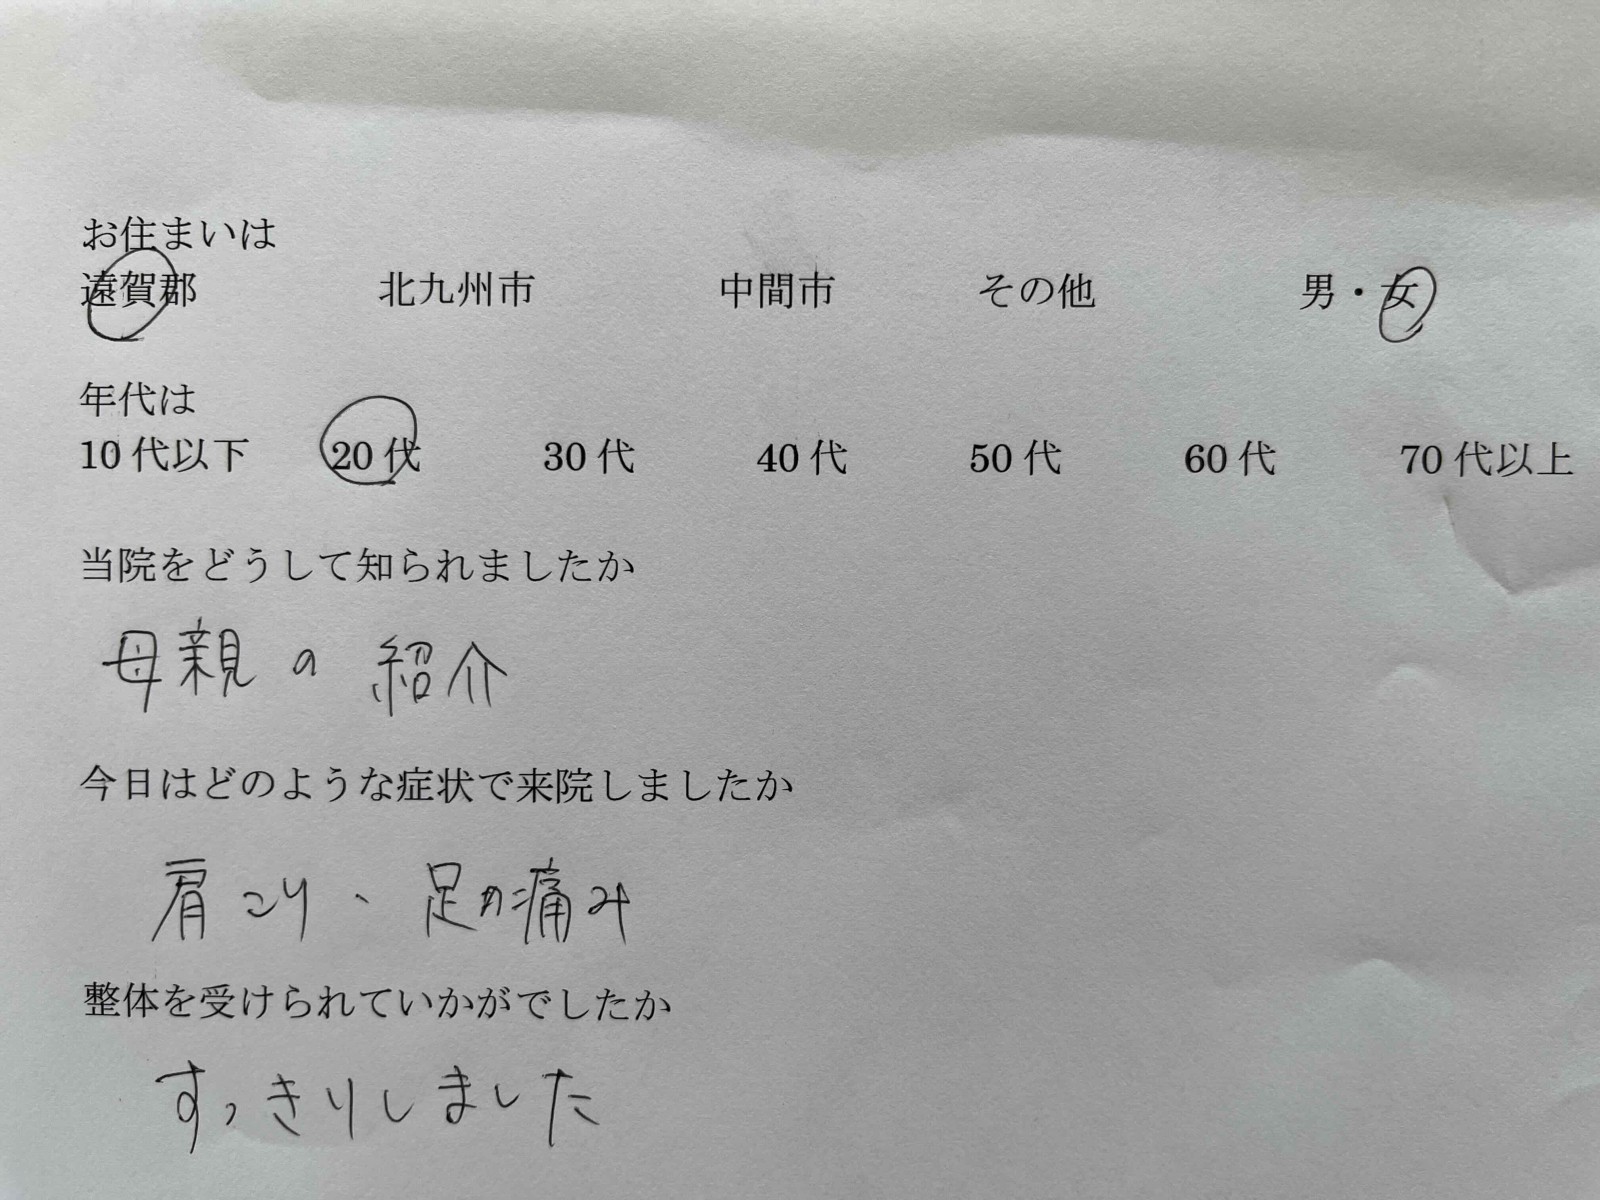 お住まいは
遠賀郡 北九州市 中間市 その他 男・女
年代は
10代以下 20代 30代 40代 50代 60代 70代以上
当院をどうして知られましたか
母親の紹介
今日はどのような症状で来院しましたか
肩こり、足の痛み
整体を受けられていかがでしたか
すっきりしました